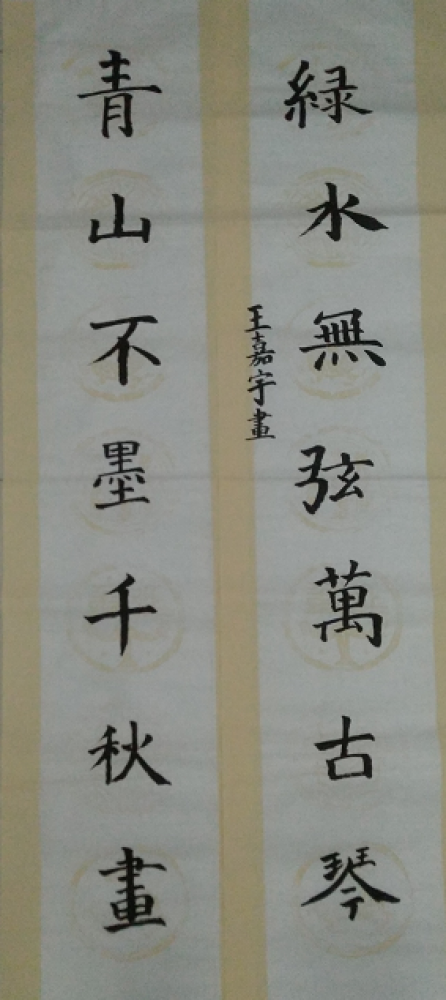 緑水無弦萬古琴
王嘉宇畫
青山不墨千秋畫